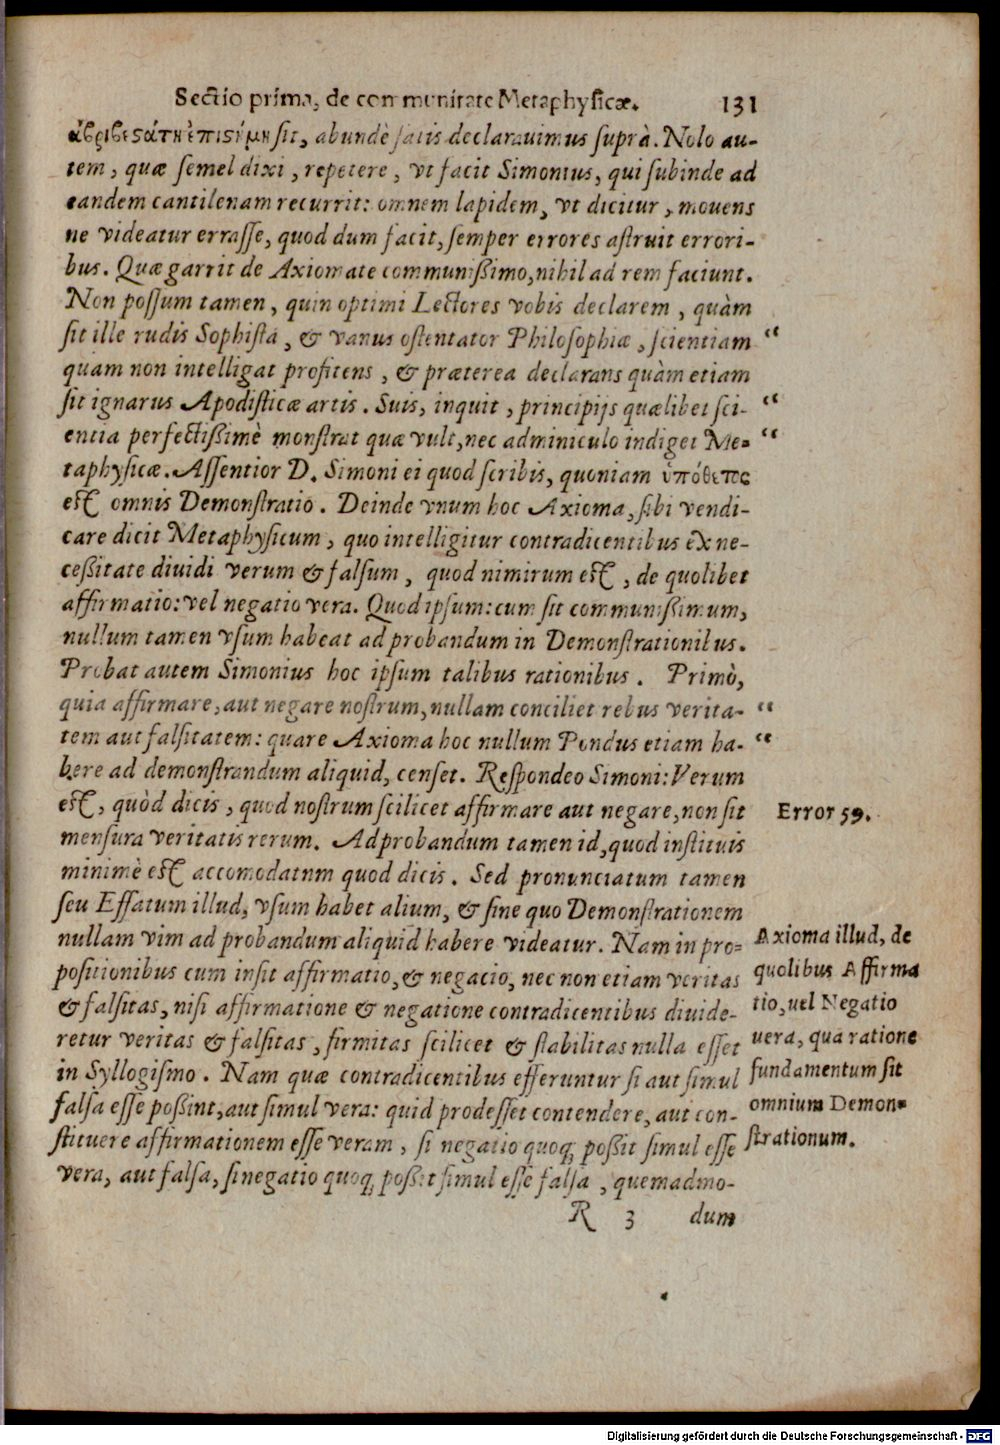 Sectio prima, de communitate Metaphysicæ. 131
ἀκριβεςάτη ἐπιςήμη sit, abundè satis declarauimus suprà. Nolo au-
tem, quæ semel dixi, repetere, vt facit Simonius, qui subinde ad
eandem cantilenam recurrit: omnem lapidem, vt dicitur, mouens
ne videatur errasse, quod dum facit, semper errores astruit errori-
bus. Quæ garrit de Axiomate communißimo, nihil ad rem faciunt.
Non possum tamen, quin optimi Lectores vobis declarem, quàm
sit ille rudis Sophista, & vanus ostentator Philosophiæ, scientiam “
quam non intelligat profitens, & præterea declarans quàm etiam
sit ignarus Apodisticæ artis. Suis, inquit, principijs quælibet sci- “
entia perfectißimè monstrat quæ vult, nec adminiculo indiget Me= “
taphysicæ. Assentior D. Simoni ei quod scribis, quoniam
est omnis Demonstratio. Deinde vnum hoc Axioma, sibi vendi-
care dicit Metaphysicum, quo intelligitur contradicentibus ex ne-
ceßitate diuidi verum & falsum, quod nimirum est, de quolibet
affirmatio: vel negatio vera. Quod ipsum: cum sit communißimum,
nullum tamen vsum habeat ad probandum in Demonstrationibus.
Probat autem Simonius hoc ipsum talibus rationibus. Primò,
quia affirmare, aut negare nostrum, nullam conciliet rebus verita- “
tem aut falsitatem: quare Axioma hoc nullum Pondus etiam ha- “
bere ad demonstrandum aliquid, censet. Respondeo Simoni: Verum
est, quòd dicis, quod nostrum scilicet affirmare aut negare, non sit
mensura veritatis rerum. Ad probandum tamen id, quod instituis
minimè est accomodatnm quod dicis. Sed pronunciatum tamen
seu Effatum illud, vsum habet alium, & sine quo Demonstrationem
nullam vim ad probandum aliquid habere videatur. Nam in pro=
positionibus cum insit affirmatio, & negacio, nec non etiam veritas
& falsitas, nisi affirmatione & negatione contradicentibus diuide-
retur veritas & falsitas, firmitas scilicet & stabilitas nulla esset
in Syllogismo. Nam quæ contradicentibus efferuntur si aut simul
falsa esse poßint, aut simul vera: quid prodesset contendere, aut con-
stituere affirmationem esse veram, si negatio quoq; poßit simul esse
vera, aut falsa, si negatio quoq; poßit simul esse falsa, quemadmo-
R 3 dum
Error 59.
Axioma illud, de
quolibus Affirma
tio, uel Negatio
uera, qua ratione
fundamentum sit
omnium Demon=
strationum.
Digitalisierung gefördert durch die Deutsche Forschungsgemeinschaft - DFG